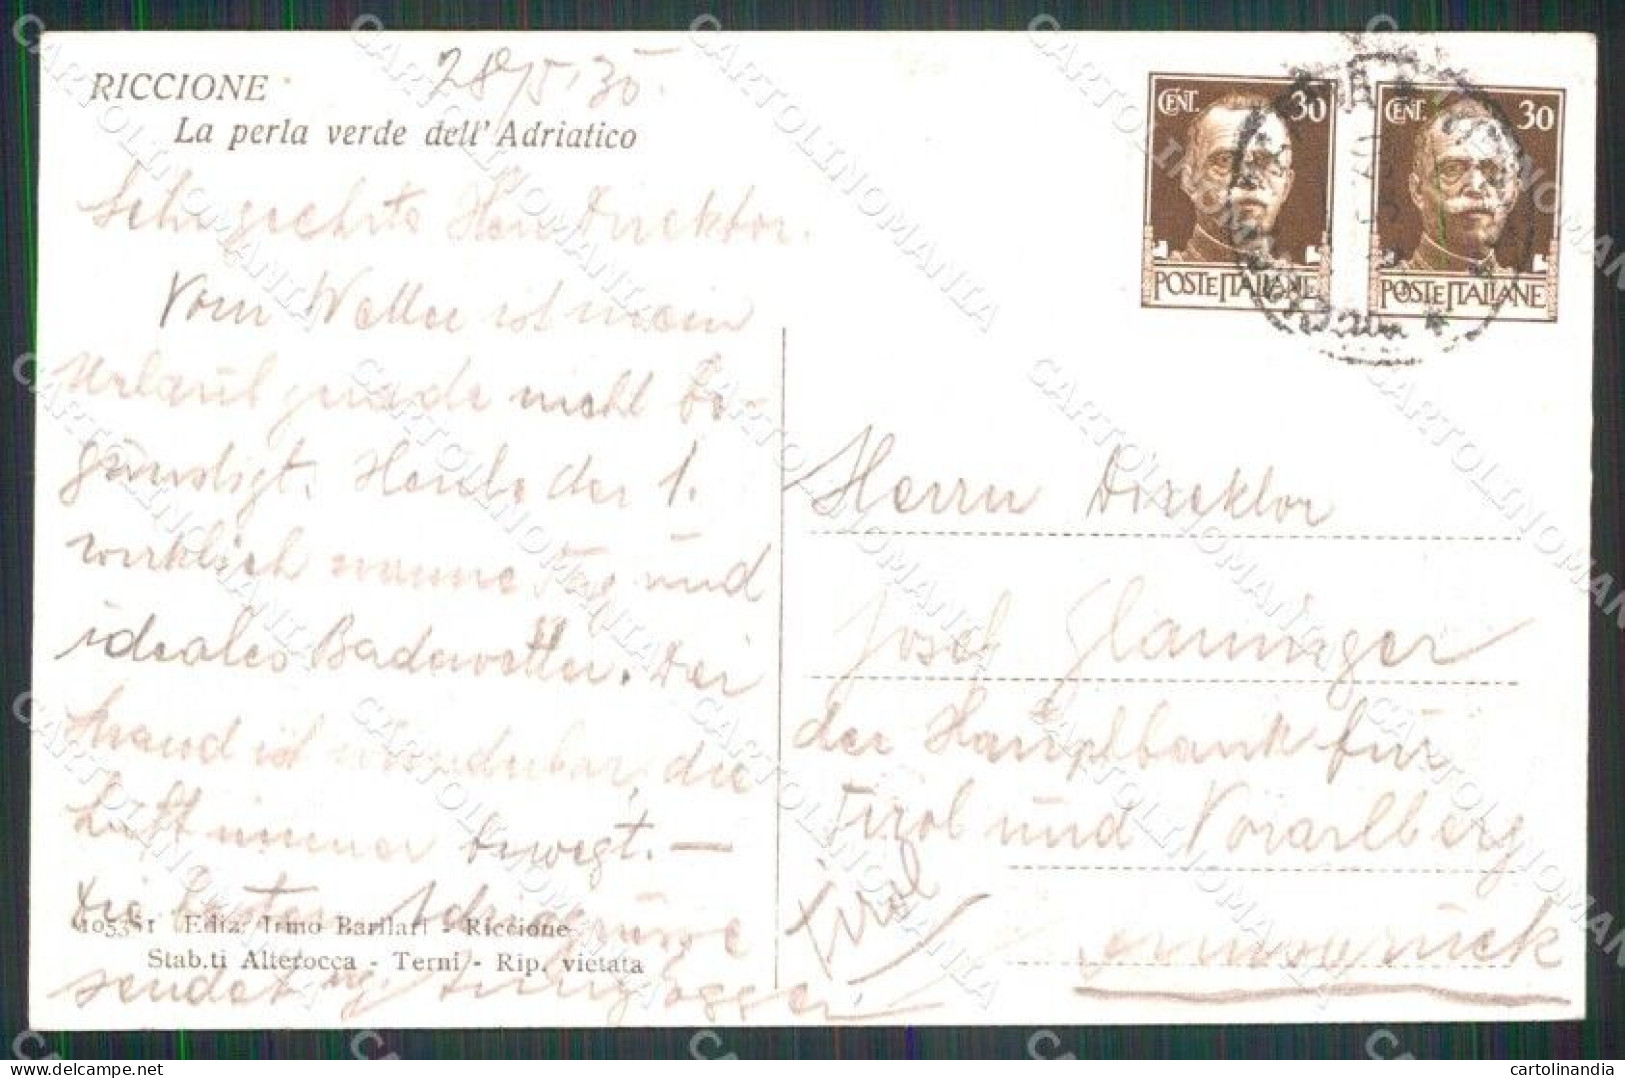 RICCIONE
28/5.35.
La perla verde dell'Adriatico
Sehr geehrte Herr Direktor.
Vom Wetter ist mein
Urlaub gerade nicht be-
günstigt. Heute der 1.
wirklich warme Tag und
ideales Badewetter. Der
Strand ist wunderbar, die
Luft immer bewegt. —
Die besten Adriagrüsse
sendet
105381 Ediz. Irmo Barilari - Riccione
Stab.ti Alterocca - Terni - Rip. vietata
CENT. 30
POSTE ITALIANE
CENT. 30
POSTE ITALIANE
Herrn Direktor
Josef Glaninger
der Hauptbank für
Tirol und Vorarlberg
Innsbruck
Tirol
CARTOLINOMANIA
delcampe.net
cartolinandia